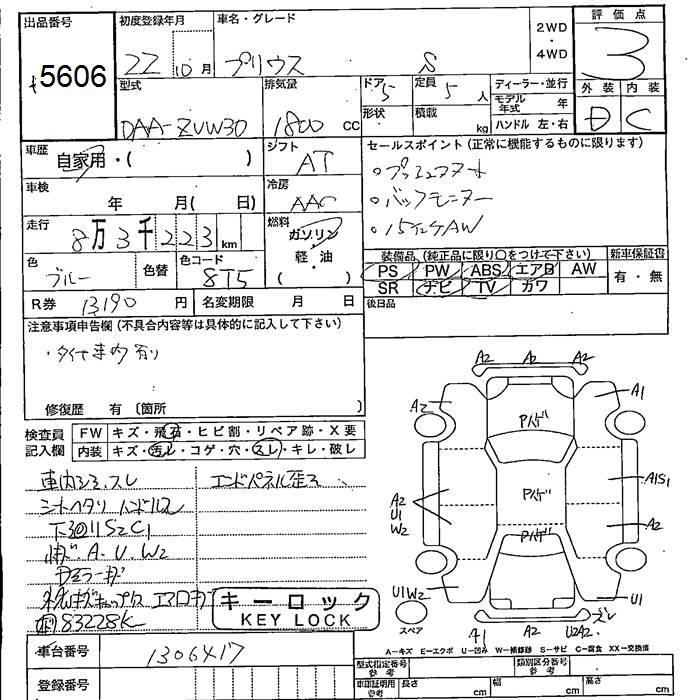 出品番号
5606
初度登録年月
22 10月
車名・グレード
プリウス S
2WD
・
4WD
評価点
3
外装 内装
D C
型式
DAA-ZVW30
排気量
1800 CC
ドア 5
形状
定員 5 人
積載 kg
ディーラー・並行
モデル年式 年
ハンドル 左・右
車歴
自家用・( )
シフト
AT
セールスポイント(正常に機能するものに限ります)
・プッシュスタート
・バックモニター
・15インチAW
車検
年 月( 日)
冷房
AAC
走行
8万3千223km
燃料
ガソリン
・
軽・油
( )
色
ブルー
色替
色コード
8T5
装備品 (純正品に限り○をつけて下さい)
PS PW ABS エアB AW
SR ナビ TV カワ
新車保証書
有・無
R券 13190 円
名変期限 月 日
後日品
注意事項申告欄(不具合内容等は具体的に記入して下さい)
・タイヤ車内有り
修復歴 有 〔箇所 〕
検査員記入欄
FW キズ・飛石・ヒビ割・リペア跡・X要
内装 キズ・汚レ・コゲ・穴・スレ・キレ・破レ
車内シミ、スレ
エンドパネル歪み
シートヘタリ ハンドルスレ
S2C1
A.U.W2
エアロキズ
83228K
キーロック
KEY LOCK
A2 A2 A2
A2 A1
Pハゲ
Pハゲ
Pハゲ
A2
U1
W2
A1S1
A2
U1W2
U1
A1 U2A2 ズレ
スペア
A-キズ E-エクボ U-凹み W-補修跡 S-サビ C-腐食 XX-交換済
車台番号
1306417
登録番号
型式指定番号
参考
類別区分番号
参考
車庫証明用
参考
長さ cm
幅 cm
高さ cm